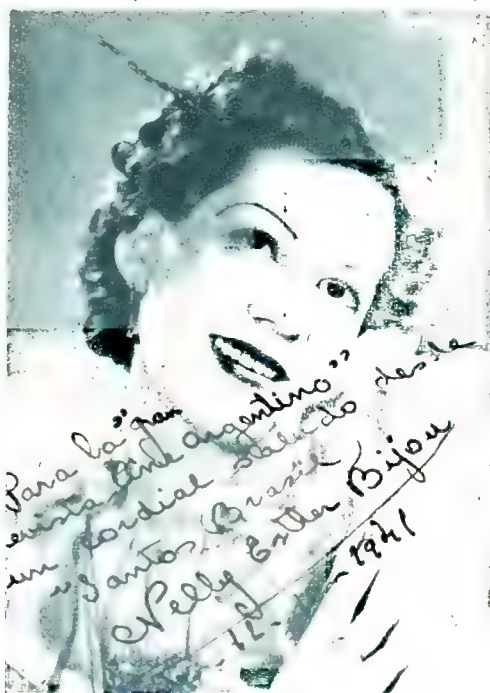 Para la "gran
revista Cine Argentino"
un cordial saludo desde
"Santos Brasil
Nelly Esther Bijou
-12- -1941